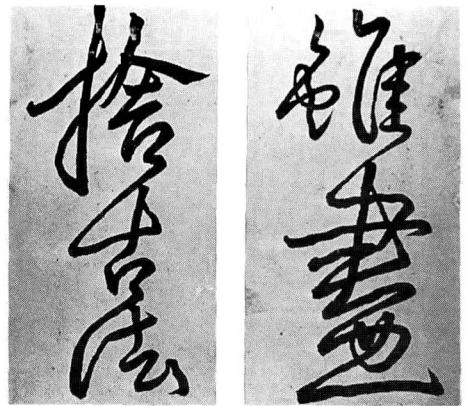 雖盡
捨古法